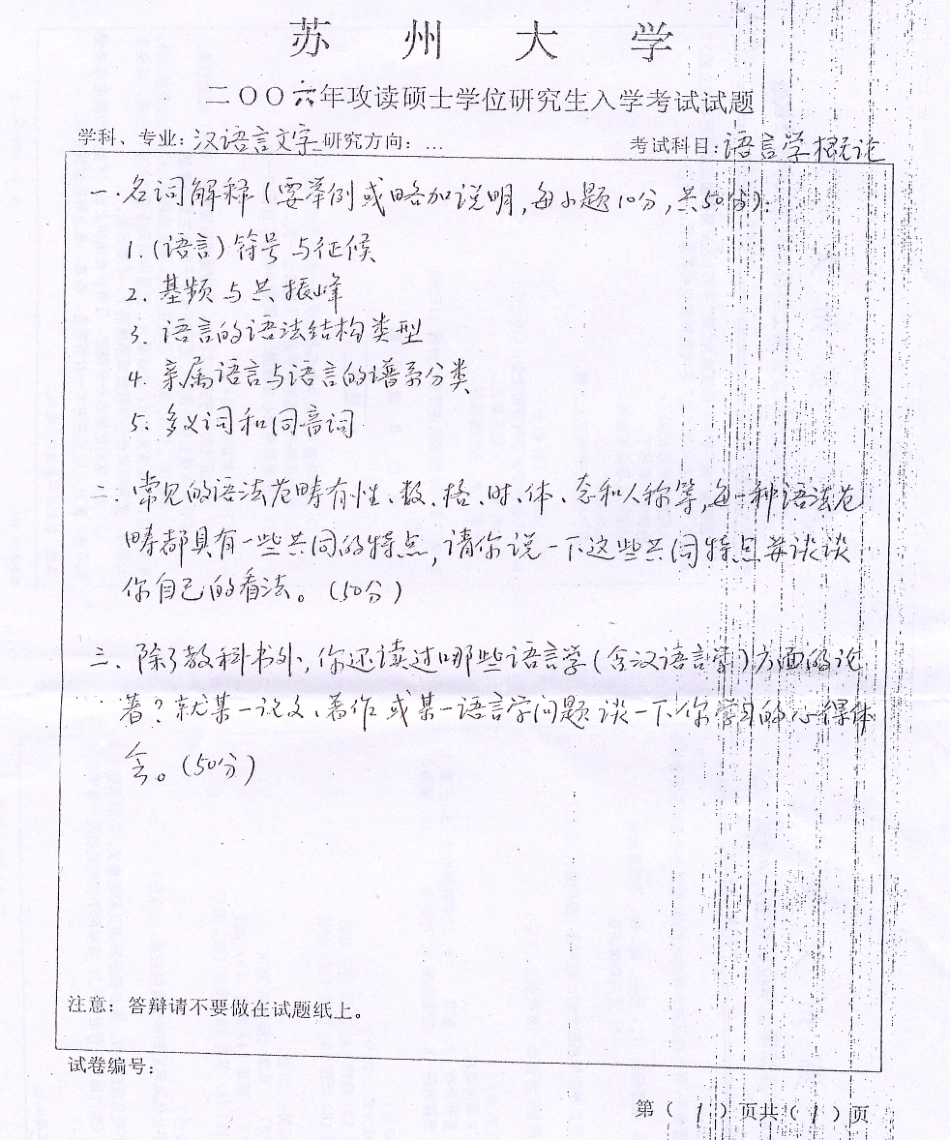 苏州大学
二〇〇六年攻读硕士学位研究生入学考试试题
学科、专业：汉语言文字 研究方向：… 考试科目：语言学概论
一.名词解释（要举例或略加说明，每小题10分，共50分）：
1.（语言）符号与征候
2.基频与共振峰
3.语言的语法结构类型
4.亲属语言与语言的谱系分类
5.多义词和同音词
二、常见的语法范畴有性、数、格、时、体、态和人称等，每一种语法范
畴都具有一些共同的特点，请你说一下这些共同特点并谈谈
你自己的看法。（50分）
三、除了教科书外，你还读过哪些语言学（含汉语言学）方面的论
著？就某一论文、著作或某一语言学问题谈一下你学习的心得体
会。（50分）
注意：答辩请不要做在试题纸上。
试卷编号：
第（1）页共（1）页